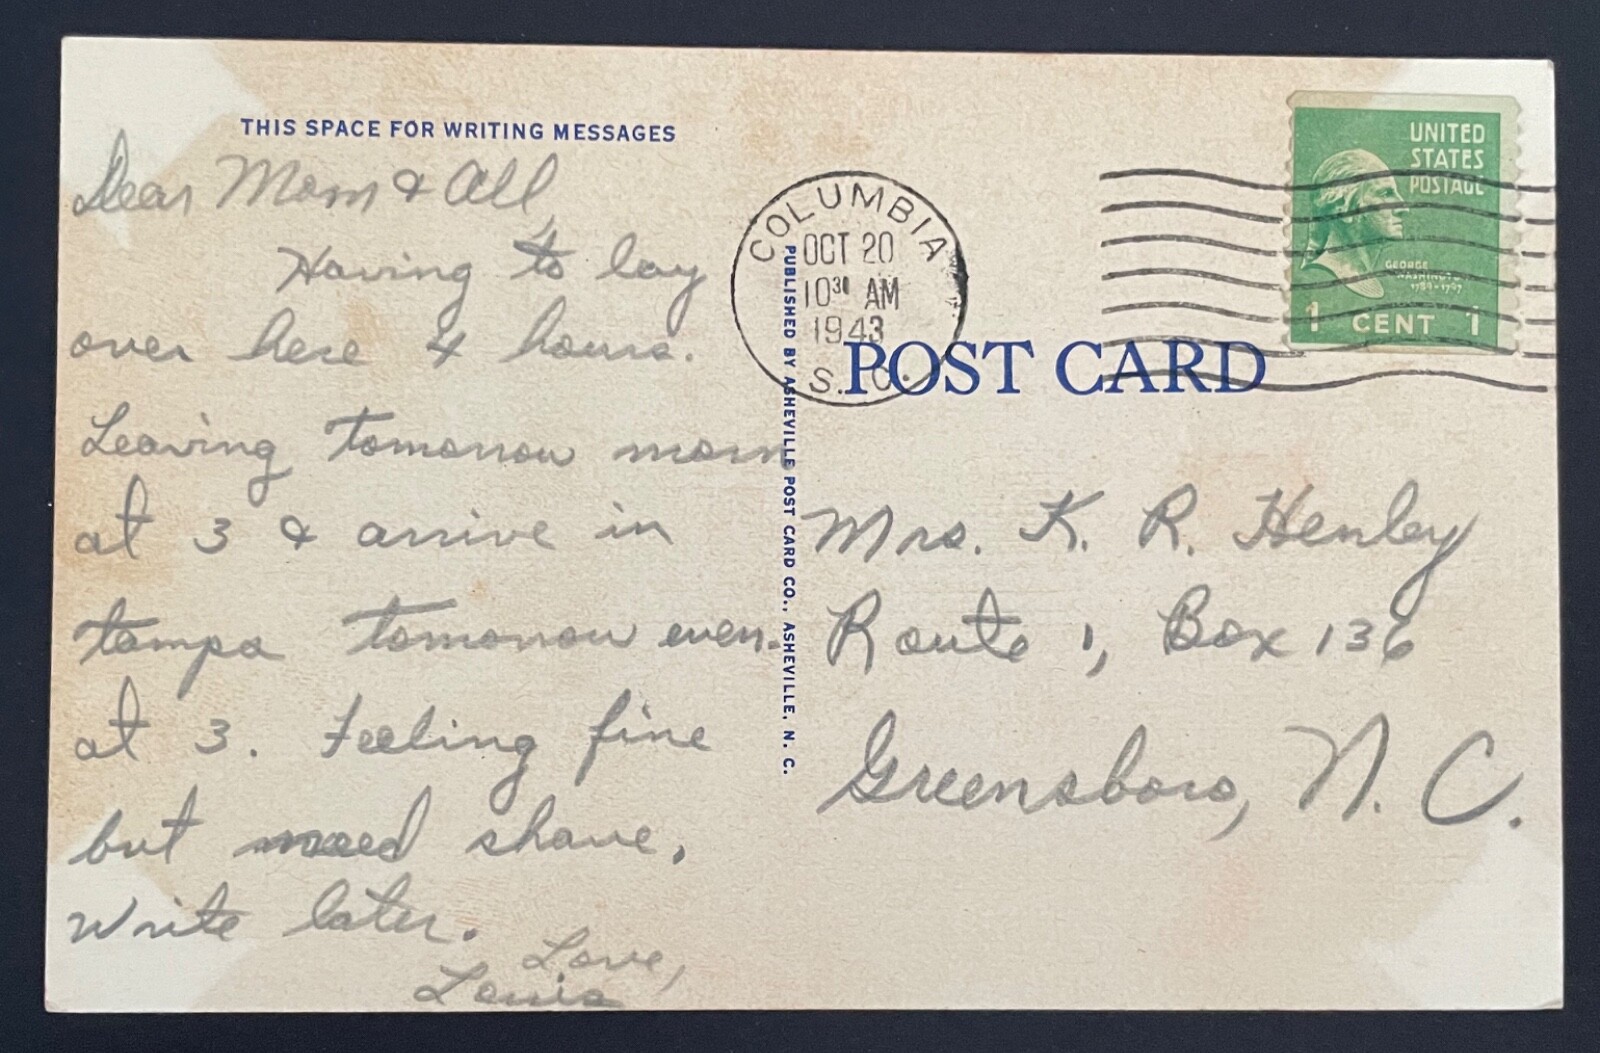 THIS SPACE FOR WRITING MESSAGES
Dear Mom & All,
Having to lay
over here 4 hours.
Leaving tomorrow morn
at 3 & arrive in
tampa tomorrow even.
at 3. Feeling fine
but need shave.
Write later.
Love,
Louis
PUBLISHED BY ASHEVILLE POST CARD CO., ASHEVILLE, N. C.
COLUMBIA
OCT 20
10 30 AM
1943
S. C.
POST CARD
UNITED
STATES
POSTAGE
GEORGE
WASHINGTON
1789-1797
1 CENT 1
Mrs. K. R. Henley
Route 1, Box 136
Greensboro, N. C.